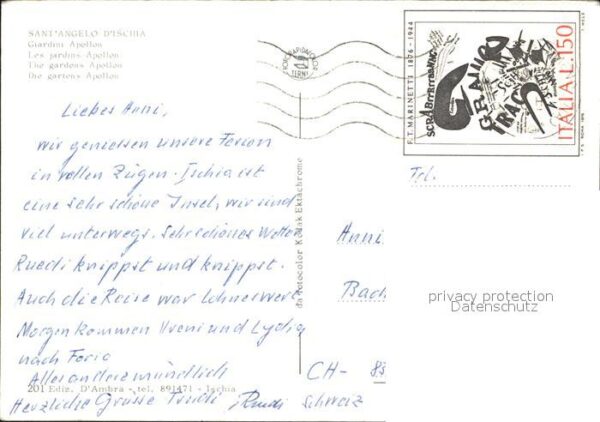 SANT'ANGELO D'ISCHIA
Giardini Apollon
Les jardins Apollon
The gardens Apollon
Die gärten Apollon
F.T. MARINETTI 1876 - 1944
SCRABrrRrraaNNG
GRAAACO
TRAC
ITALIA L.150
I.P.S. ROMA 1976
Tel.
Liebes Anni,
wir geniessen unsere Ferien
in vollen Zügen. Ischia ist
eine sehr schöne Insel, wir sind
viel unterwegs. Sehr schönes Wetter
Ruedi knippst und knippst.
Auch die Reise war lohnenswert
Morgen kommen Vreni und Lydia
nach Forio
Alles andere mündlich
Herzliche Grüsse Trudi Ruedi
da Fotocolor Kodak Ektachrome
201 Ediz. D'Ambra - tel. 891471 - Ischia
Anni
Bach
CH- 83
Schweiz
privacy protection
Datenschutz